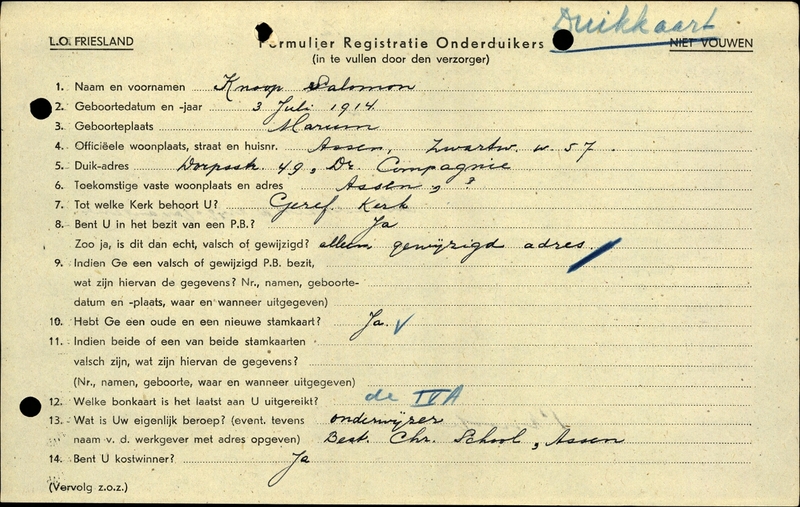 Duikkaart
L.O. FRIESLAND Formulier Registratie Onderduikers NIET VOUWEN
(in te vullen door den verzorger)
1. Naam en voornamen Knoop Salomon
2. Geboortedatum en -jaar 3 Juli 1914
3. Geboorteplaats Marum
4. Officiëele woonplaats, straat en huisnr. Assen, Zwartw. w. 57.
5. Duik-adres Dorpsstr. 49, Dr. Compagnie
6. Toekomstige vaste woonplaats en adres Assen, ?
7. Tot welke Kerk behoort U? Geref. Kerk
8. Bent U in het bezit van een P.B.? Ja
Zoo ja, is dit dan echt, valsch of gewijzigd? alleen gewijzigd adres.
9. Indien Ge een valsch of gewijzigd P.B. bezit,
wat zijn hiervan de gegevens? Nr., namen, geboorte-
datum en -plaats, waar en wanneer uitgegeven)
10. Hebt Ge een oude en een nieuwe stamkaart? Ja. V
11. Indien beide of een van beide stamkaarten
valsch zijn, wat zijn hiervan de gegevens?
(Nr., namen, geboorte, waar en wanneer uitgegeven)
12. Welke bonkaart is het laatst aan U uitgereikt? de IVA
13. Wat is Uw eigenlijk beroep? (event. tevens onderwijzer
naam v. d. werkgever met adres opgeven) Best. Chr. School, Assen
14. Bent U kostwinner? Ja
(Vervolg z.o.z.)